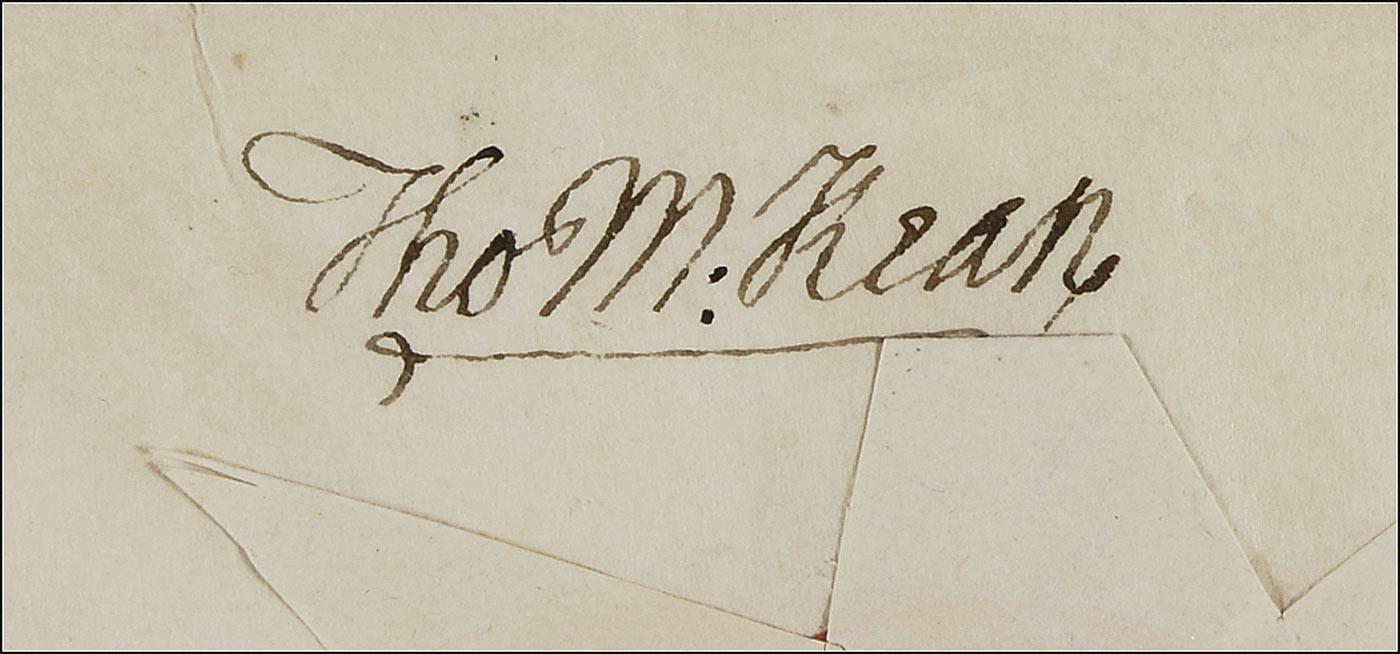 Tho M: Kean